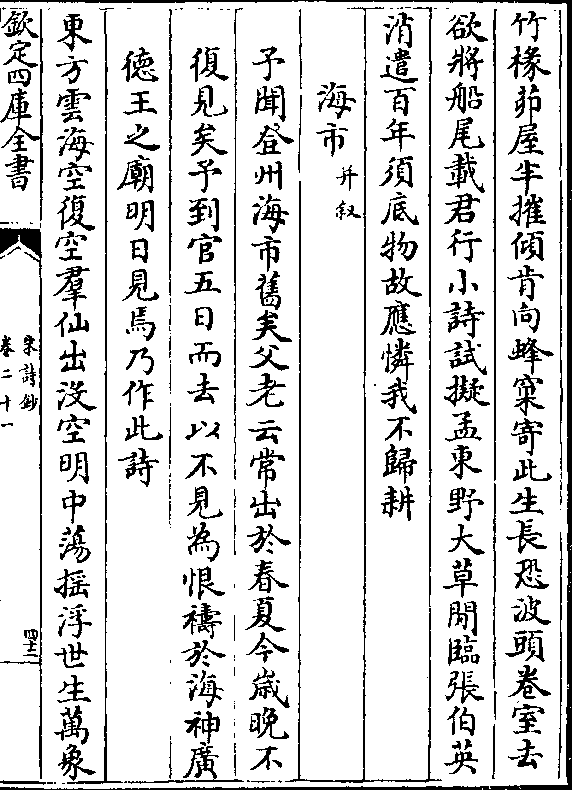 竹椽茆屋半摧傾肯向蜂窠寄此生長恐波頭卷室去
欲將船尾載君行小詩試擬孟東野大草閒臨張伯英
消遣百年須底物故應憐我不歸耕
海市并叙
予聞登州海市舊矣父老云常出於春夏今歲晚不
復見矣予到官五日而去以不見為恨禱於海神廣
德王之廟明日見焉乃作此詩
東方雲海空復空羣仙出沒空明中蕩揺浮世生萬象
欽定四庫全書
宋詩鈔
卷二十一